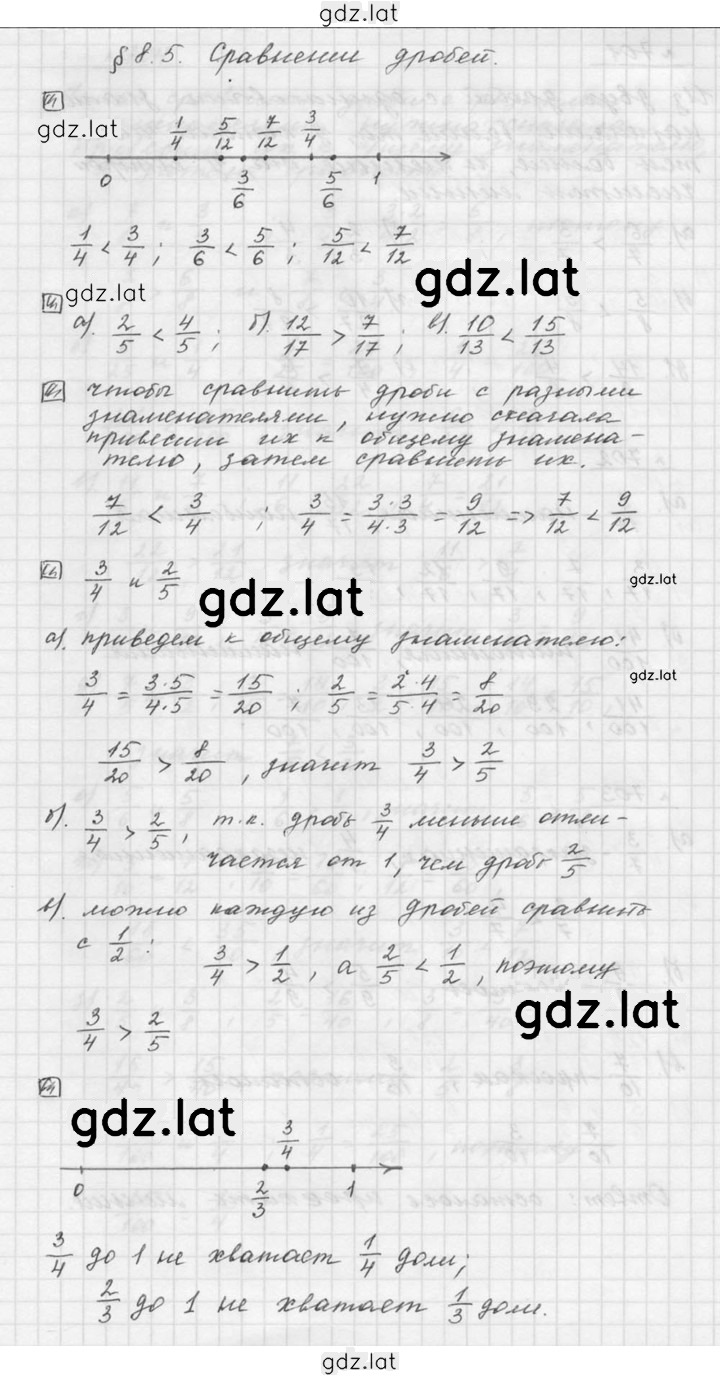 gdz.lat
§ 8.5. Сравнении дробей.
gdz.lat
1/4 5/12 7/12 3/4
0 3/6 5/6 1
1/4 < 3/4 ; 3/6 < 5/6 ; 5/12 < 7/12
gdz.lat
gdz.lat
а). 2/5 < 4/5 ; б). 12/17 > 7/17 ; в). 10/13 < 15/13
чтобы сравнить дроби с разными
знаменателями, нужно сначала
привести их к общему знамена-
телю, затем сравнить их.
7/12 < 3/4 ; 3/4 = 3·3/4·3 = 9/12 => 7/12 < 9/12
3/4 и 2/5
gdz.lat
gdz.lat
а). приведем к общему знаменателю:
3/4 = 3·5/4·5 = 15/20 ; 2/5 = 2·4/5·4 = 8/20
gdz.lat
15/20 > 8/20 , значит 3/4 > 2/5
б). 3/4 > 2/5, т.к. дробь 3/4 меньше отли-
чается от 1, чем дробь 2/5
в). можно каждую из дробей сравнить
с 1/2 : 3/4 > 1/2 , а 2/5 < 1/2 , поэтому
gdz.lat
3/4 > 2/5
gdz.lat
3/4
0 2/3 1
3/4 до 1 не хватает 1/4 доли;
2/3 до 1 не хватает 1/3 доли.
gdz.lat